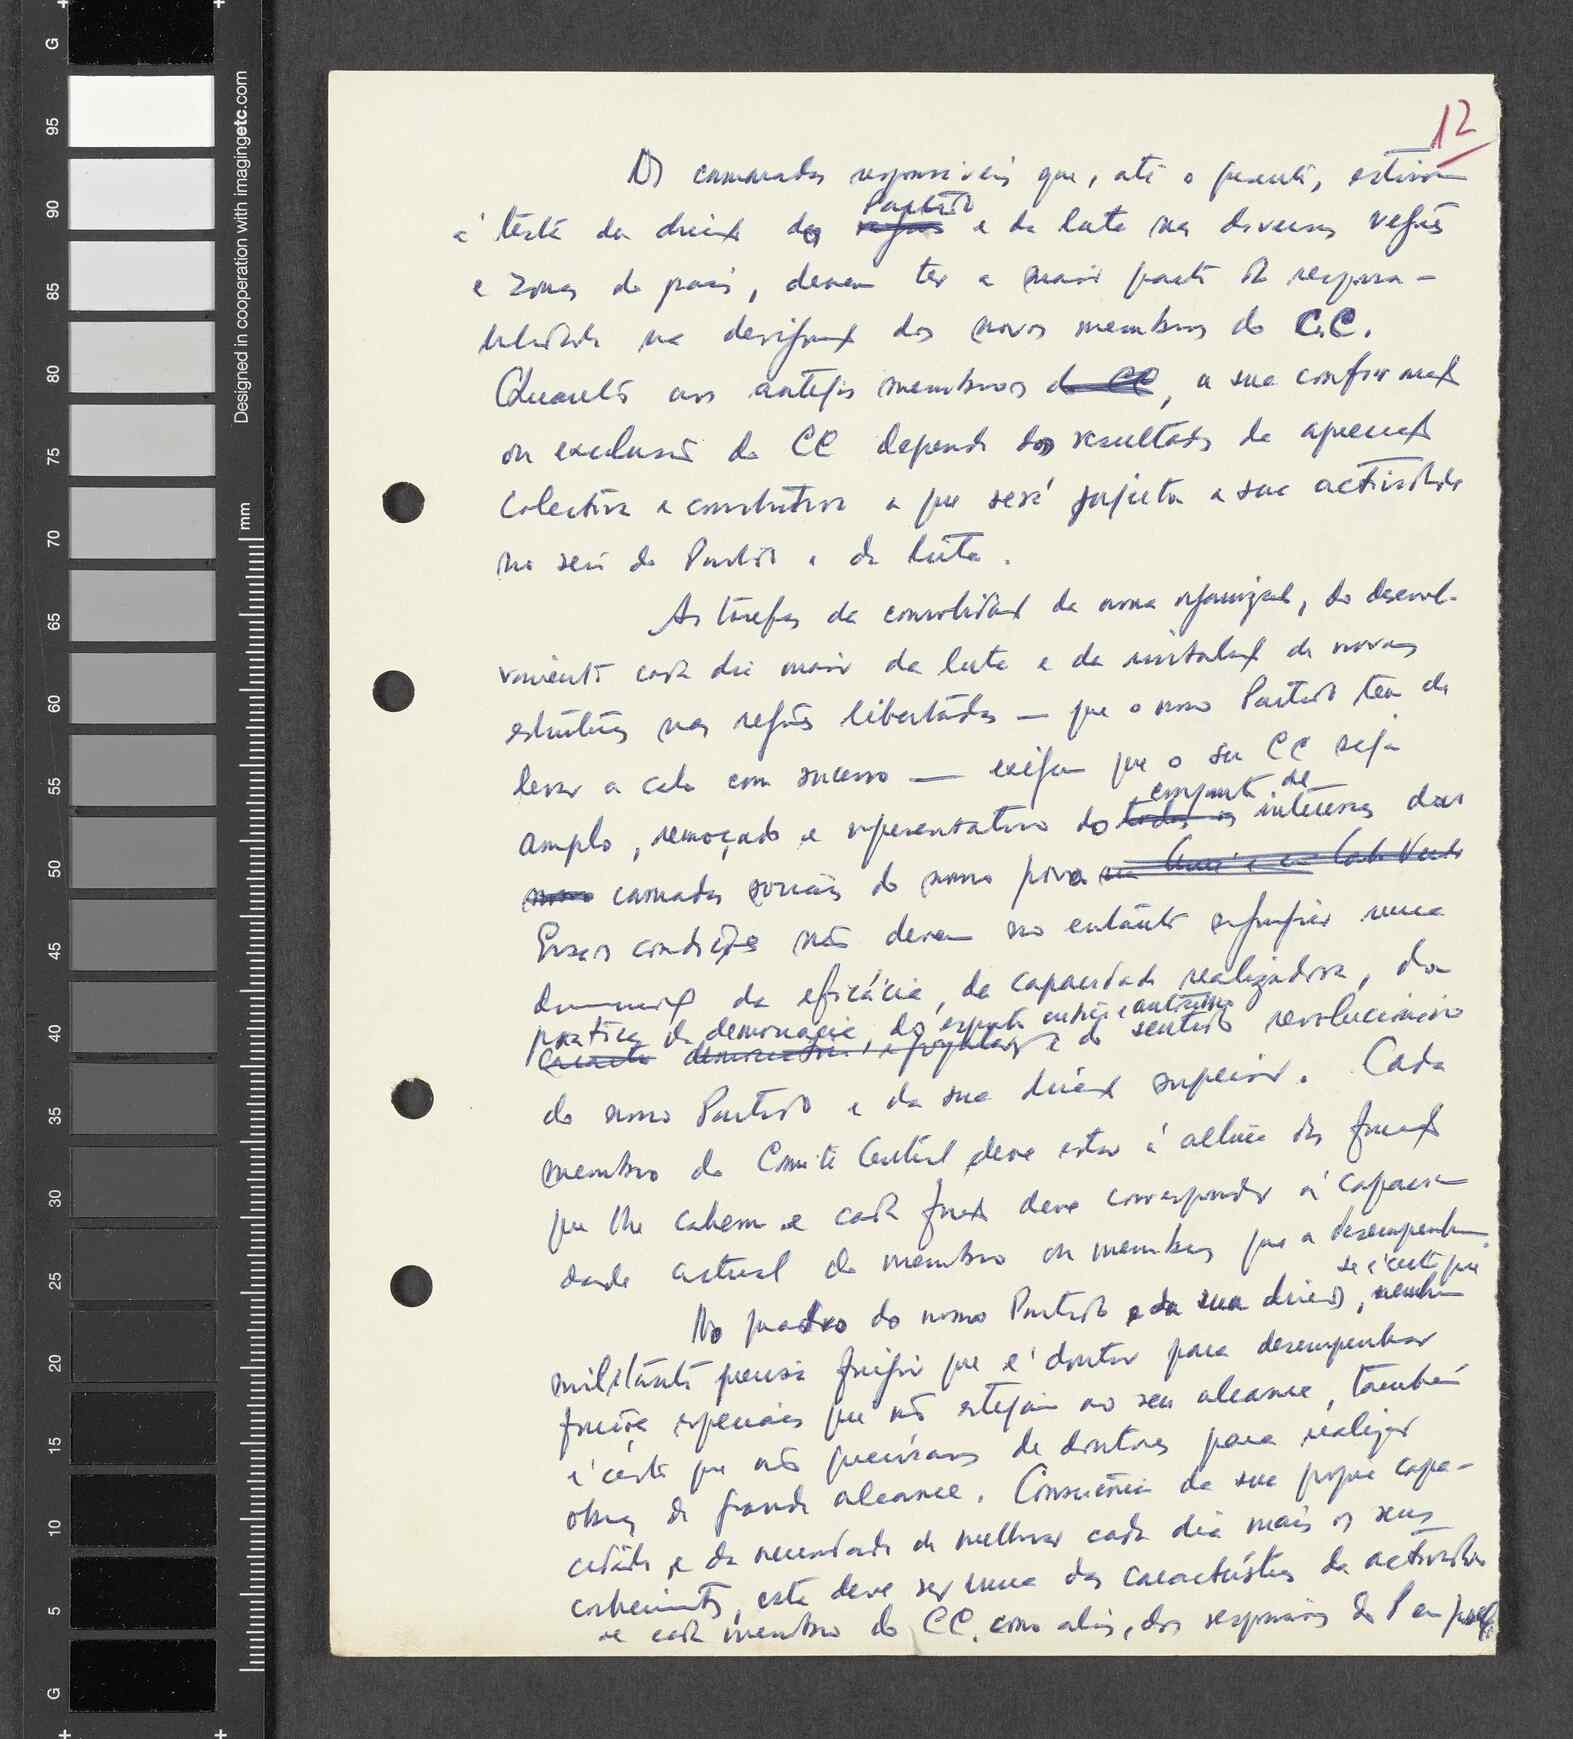 G
95
90
85
80
75
70
65
60
55
50
45
40
35
30
25
20
15
10
5
G
Designed in cooperation with imagingetc.com
mm
12
Os camaradas responsáveis que, até o presente, estiveram
à testa da direcção do Partido e da luta nas diversas regiões
e zonas do país, devem ter a maior parte da responsa-
bilidade na designação dos novos membros do CC.
Quanto aos antigos membros do CC, a sua confirmação
ou exclusão do CC depende dos resultados da apreciação
colectiva e construtiva a que será sujeita a sua actividade
no seio do Partido e da luta.
As tarefas da consolidação da nossa organização, do desenvol-
vimento cada dia maior da luta e da instalação de novas
estruturas nas regiões libertadas — que o nosso Partido tem de
levar a cabo com sucesso — exigem que o seu CC seja
amplo, remoçado e representativo do todos os conjunto de interesses das
nosso camadas sociais do nosso povo na Guiné e em Cabo Verde
Essas condições não devem no entanto significar uma
diminuição da eficácia, da capacidade realizadora, da
prática da democracia, do espírito crítico e autocrítico
e do sentido revolucionário
do nosso Partido e da sua direcção superior. Cada
membro do Comité Central deve estar à altura das funções
que lhe cabem e cada função deve corresponder à capaci-
dade actual do membro ou membros que a desempenham.
No quadro do nosso Partido e da sua direcção, se é certo que nenhum
militante precisa fingir que é doutor para desempenhar
funções especiais que não estejam ao seu alcance, também
é certo que não precisamos de doutores para realizar
obras de grande alcance. Consciência da sua própria capa-
cidade e da necessidade de melhorar cada dia mais os seus
conhecimentos, esta deve ser uma das características da actividade
de cada membro do CC, como aliás, dos responsáveis do P em